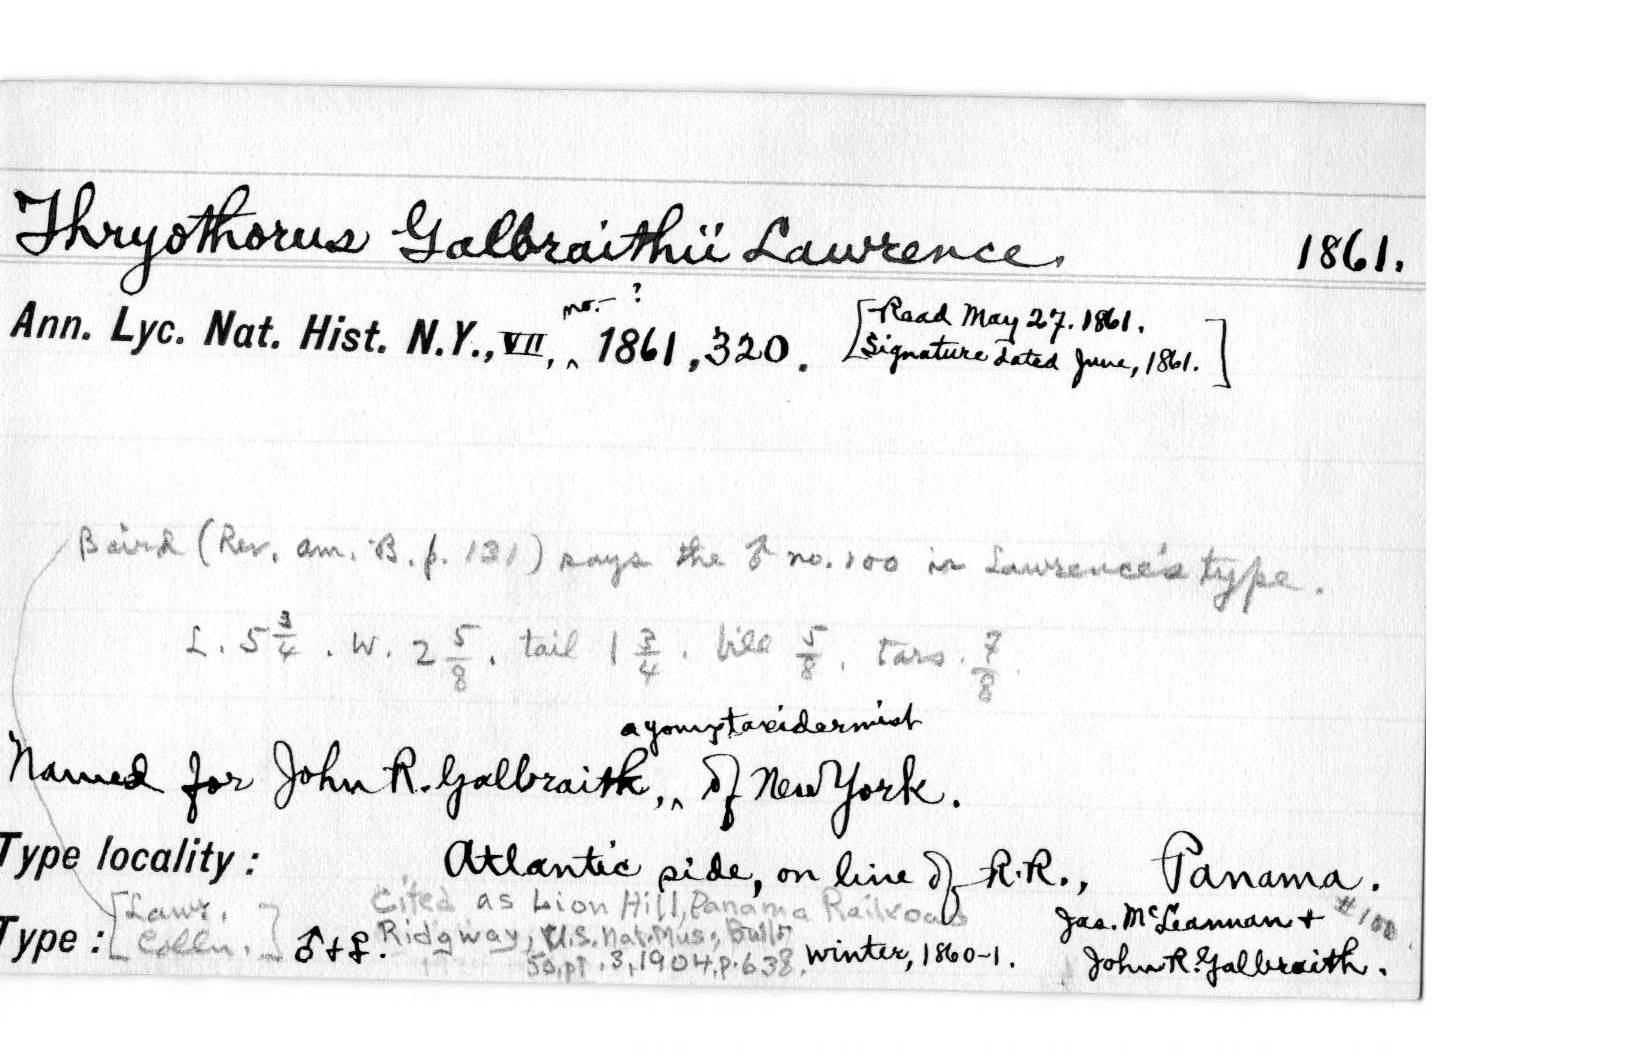 Thryothorus Galbraithii Lawrence. 1861.
no. — ?
Ann. Lyc. Nat. Hist. N.Y., VII, ^ 1861, 320. [Read May 27. 1861.
Signature dated June, 1861.]
Baird (Rev. am. B. p. 131) says the ♂ no. 100 is Lawrence's type.
L. 5 3/4 . W. 2 5/8 . tail 1 3/4 . bill 5/8 . Tars. 7/8
a young taxidermist
Named for John R. Galbraith, ^ of New York.
Type locality: Atlantic side, on line of R.R., Panama.
Cited as Lion Hill, Panama Railroad
[Lawr. Jas. McLeannan + #100
Type: Colln.] ♂ + ♀. Ridgway, U.S. Nat. Mus., Bull.
50, pt. 3, 1904, p. 638. Winter, 1860-1. John R. Galbraith.